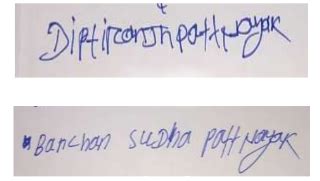 Diptiranjn pattnayak
Banchan sudha pattnayak